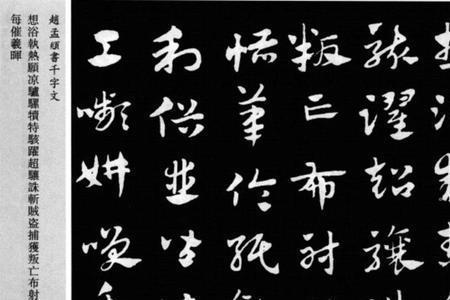 駭躍超驤
叛亡布射
恬筆倫紙
利俗並皆
工嚬妍咲
趙孟頫書千字文
想浴執熱願凉驢騾犢特駭躍超驤誅斬賊盜捕獲叛亡布射
每催羲暉